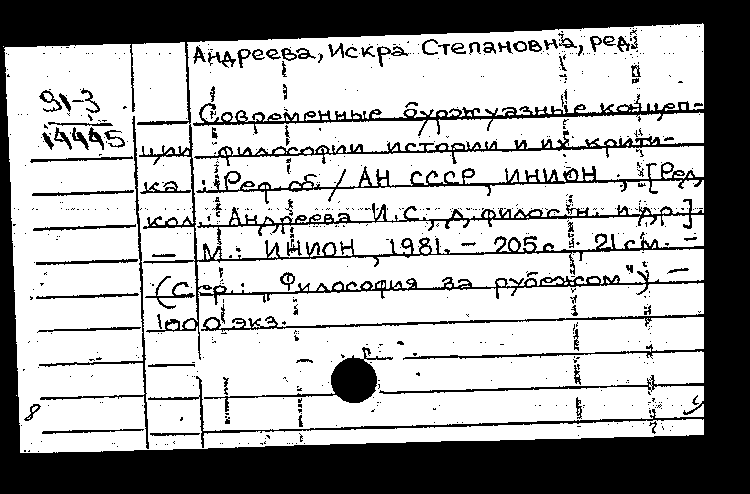 Андреева, Искра Степановна, ред.
91-3
14445
Современные буржуазные концеп-
ции философии истории и их крити-
ка : Реф. сб. / АН СССР, ИНИОН ; [Ред.
кол.: Андреева И.С., д. филос. н. и др.].
— М.: ИНИОН, 1981. – 205 с. ; 21 см. –
(Сер.: „Философия за рубежом"). —
1000 экз.
8